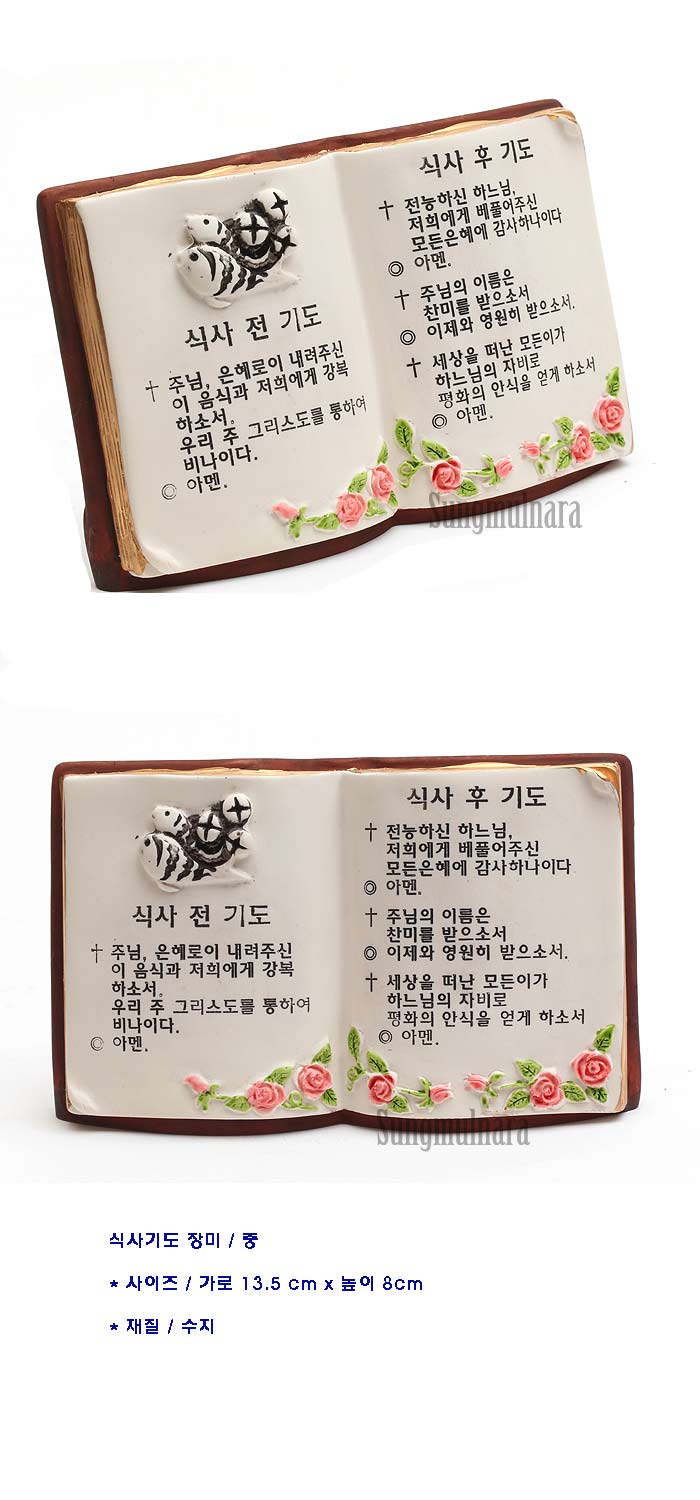 식사 전 기도
† 주님, 은혜로이 내려주신
이 음식과 저희에게 강복
하소서.
우리 주 그리스도를 통하여
비나이다.
◎ 아멘.
식사 후 기도
† 전능하신 하느님,
저희에게 베풀어주신
모든은혜에 감사하나이다
◎ 아멘.
† 주님의 이름은
찬미를 받으소서
◎ 이제와 영원히 받으소서.
† 세상을 떠난 모든이가
하느님의 자비로
평화의 안식을 얻게 하소서
◎ 아멘.
Sungmulnara
식사 전 기도
† 주님, 은혜로이 내려주신
이 음식과 저희에게 강복
하소서.
우리 주 그리스도를 통하여
비나이다.
◎ 아멘.
식사 후 기도
† 전능하신 하느님,
저희에게 베풀어주신
모든은혜에 감사하나이다
◎ 아멘.
† 주님의 이름은
찬미를 받으소서
◎ 이제와 영원히 받으소서.
† 세상을 떠난 모든이가
하느님의 자비로
평화의 안식을 얻게 하소서
◎ 아멘.
Sungmulnara
식사기도 장미 / 중
* 사이즈 / 가로 13.5 cm x 높이 8cm
* 재질 / 수지